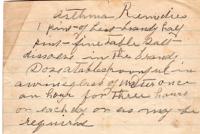 Asthma Remedies
1 pint of best brandy half
pint fine table salt
dissolve in the brandy
Dose a tablespoonful in
a wineglass of water once
an hour for three hours
each day or as may be
required